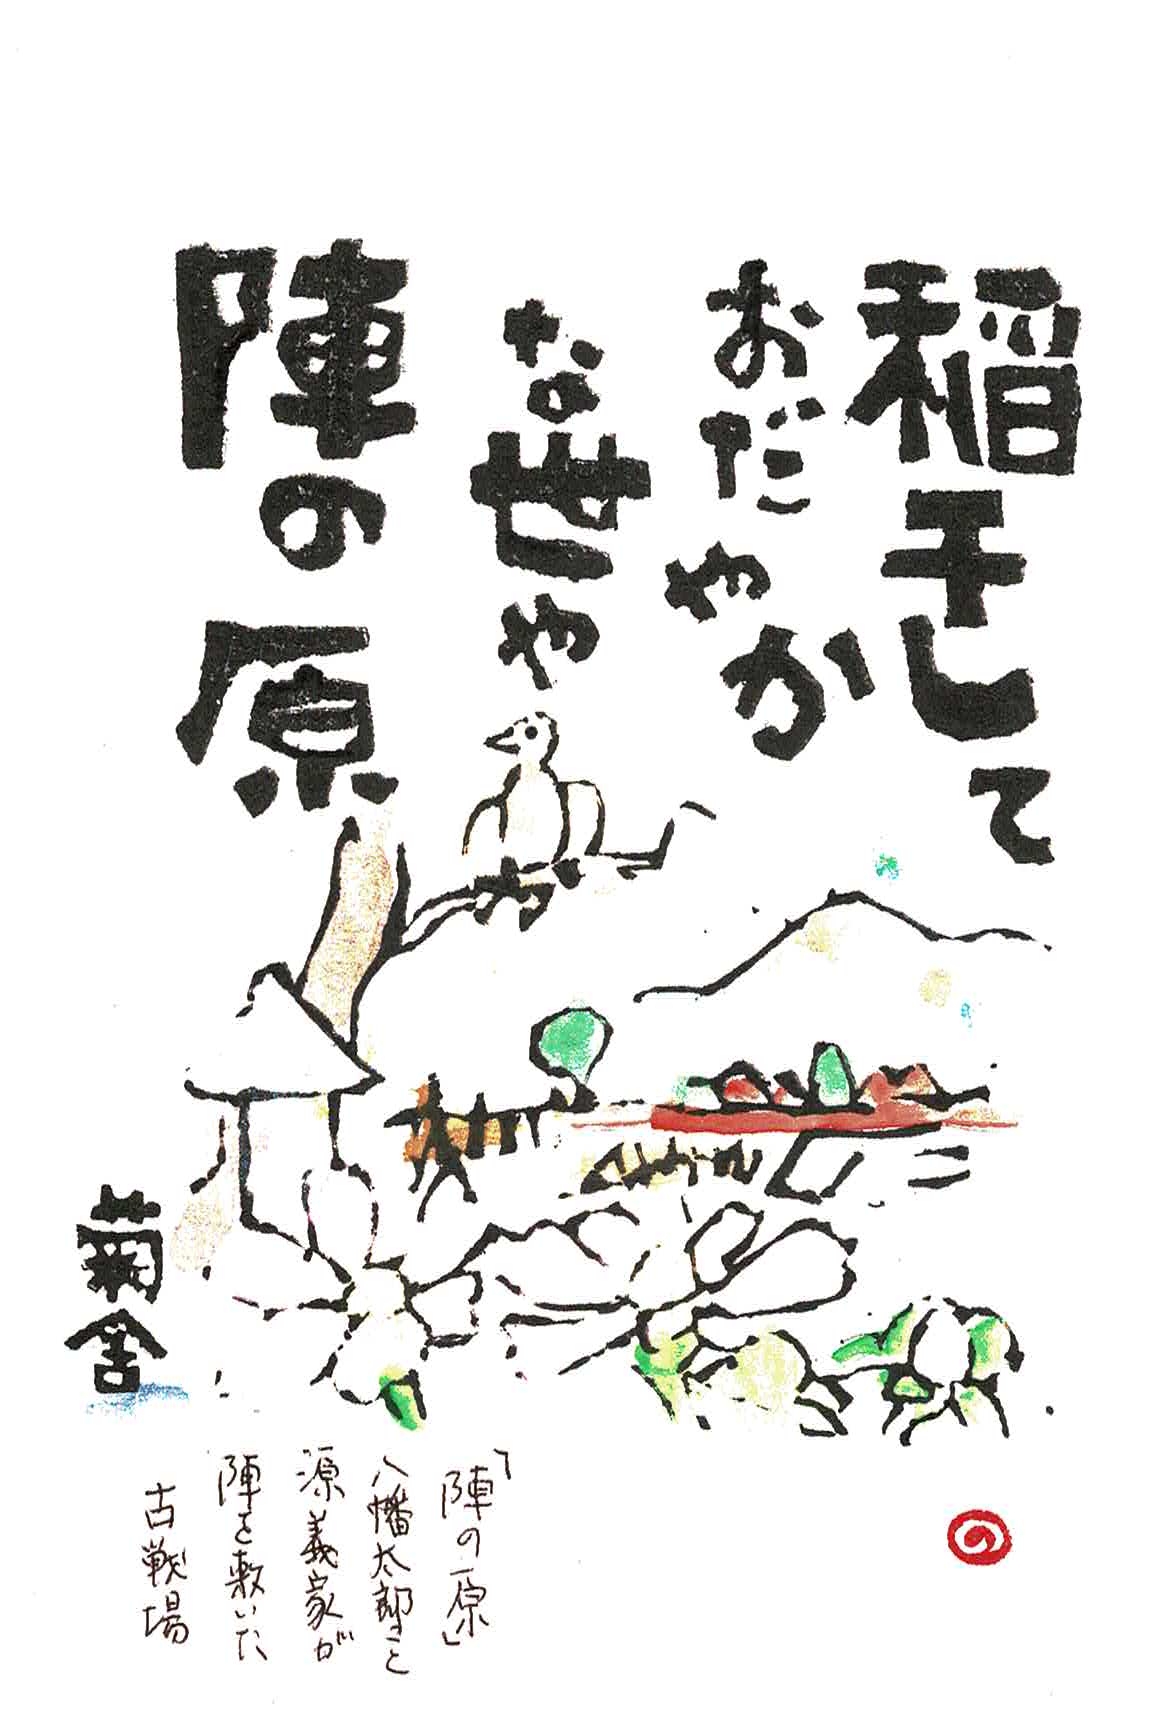 稲干して
おだやか
な世や
陣の原
菊舎
「陣の原」
八幡太郎こと
源義家が
陣を敷いた
古戦場
の